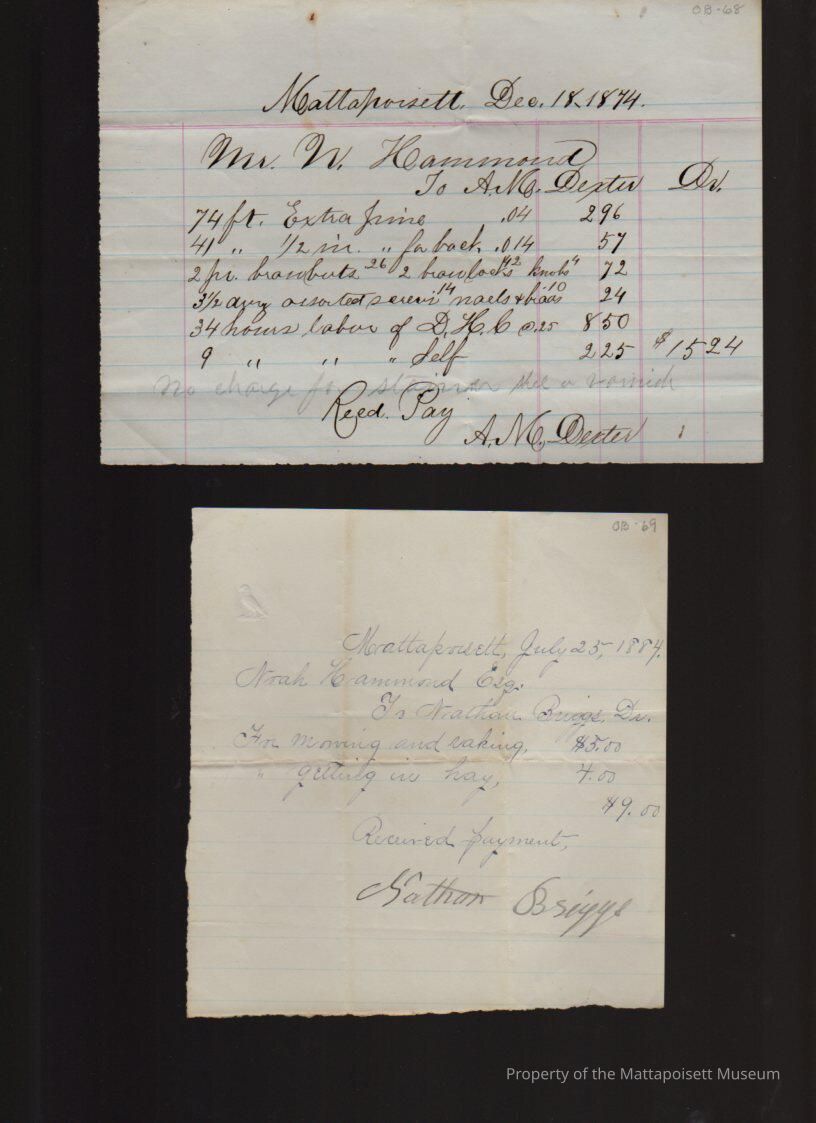 OB-68
Mattapoisett, Dec. 18, 1874.
Mr. N. Hammond
To A.M. Dexter Dr.
74 ft. Extra pine .04 296
41 " 1/2 in. " for back .014 57
2 pr. brass buts 26 2 brass locks 42 knobs 4 72
3 1/2 assorted screws 14 nails & 10 24
34 hours labor of D.H.C @.25 850
9 " " " Self 225 $15 24
No charge for shel a varnish
Recd. Pay
A.M. Dexter
OB-69
Mattapoisett, July 25, 1884.
Noah Hammond Esq.
To Nathan Briggs, Dr.
For mowing and raking, $5.00
" getting in hay, 4.00
$9.00
Received payment,
Nathan Briggs
Property of the Mattapoisett Museum